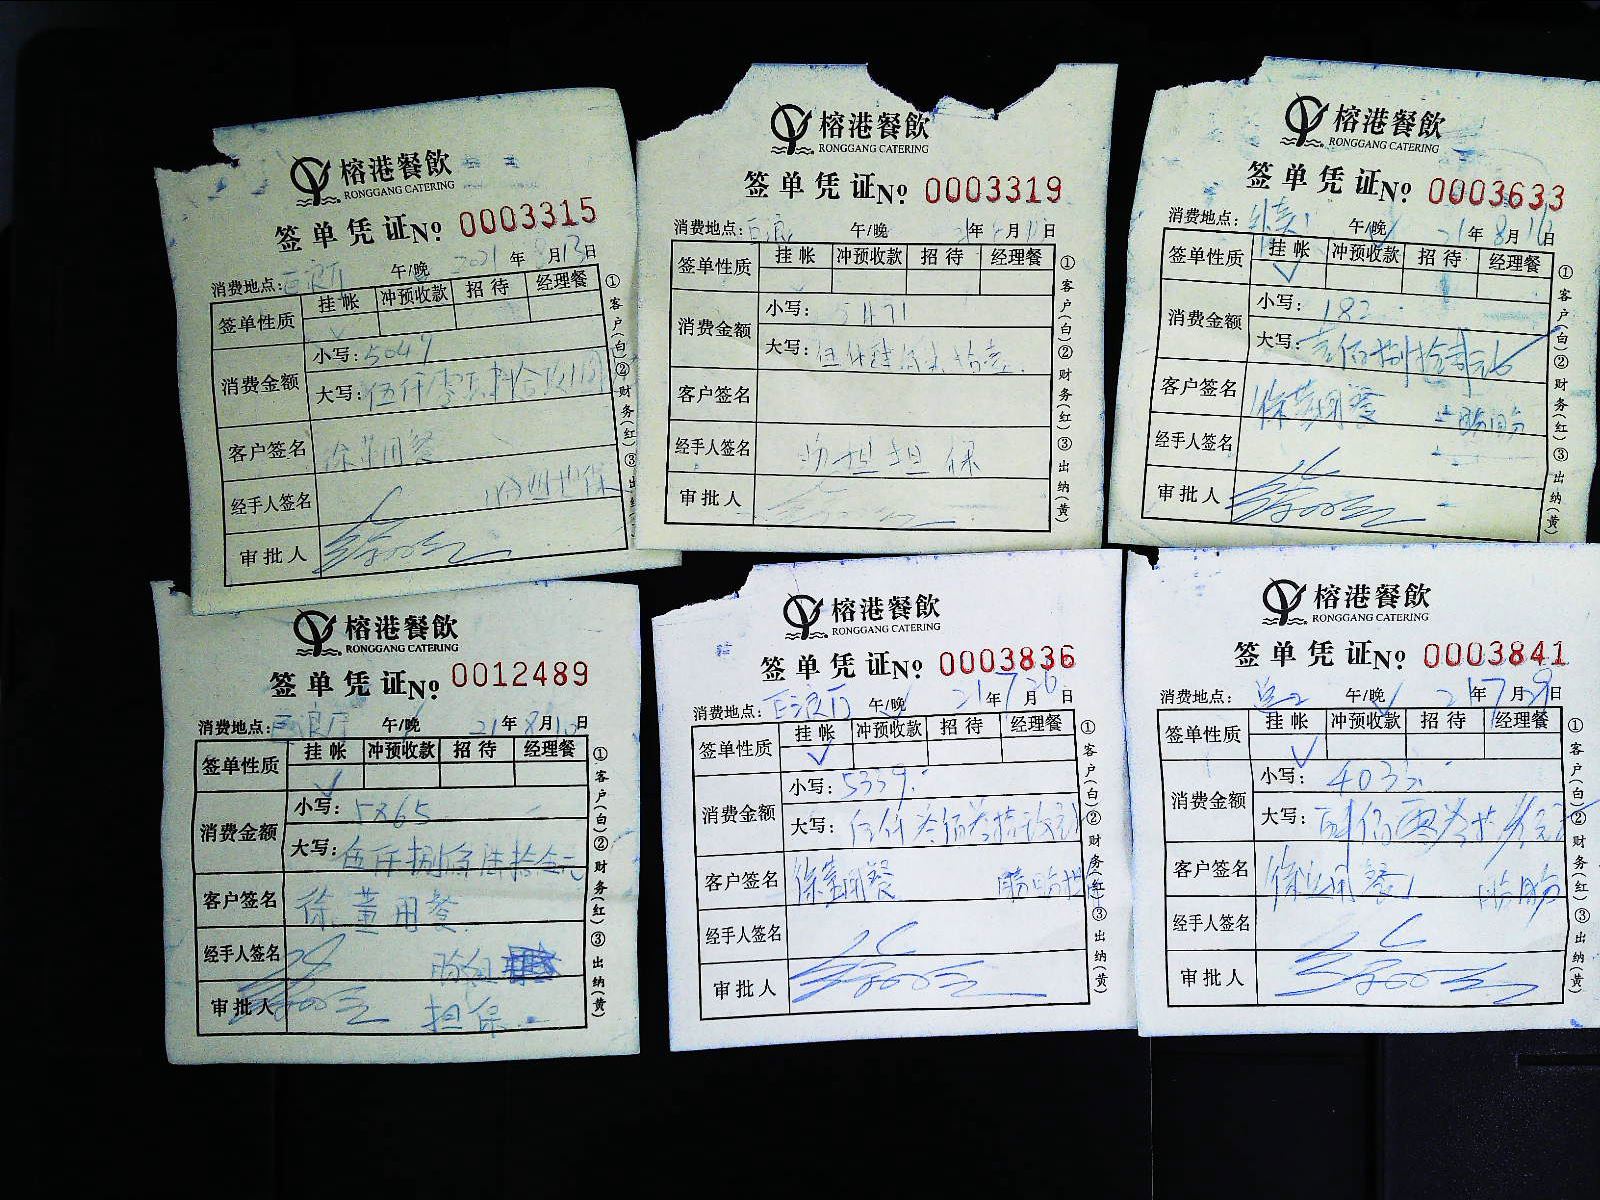 榕港餐飲
RONGGANG CATERING
签单凭证 No 0003315
消费地点: 午/晚 2021 年 8 月 13 日
签单性质 挂帐 冲预收款 招待 经理餐
消费金额 小写: 5049
大写: 伍仟零
客户签名 徐董用餐
经手人签名 担保
审批人
①客户(白)②财务(红)③出纳(黄)
榕港餐飲
RONGGANG CATERING
签单凭证 No 0003319
消费地点: 午/晚 21 年 月 日
签单性质 挂帐 冲预收款 招待 经理餐
消费金额 小写: 5471
大写: 伍仟肆佰柒拾壹
客户签名
经手人签名 担保
审批人
①客户(白)②财务(红)③出纳(黄)
榕港餐飲
RONGGANG CATERING
签单凭证 No 0003633
消费地点: 午/晚 21 年 8 月 16 日
签单性质 挂帐 冲预收款 招待 经理餐
消费金额 小写: 182
大写: 壹佰捌拾贰元
客户签名 徐董用餐
经手人签名
审批人
①客户(白)②财务(红)③出纳(黄)
榕港餐飲
RONGGANG CATERING
签单凭证 No 0012489
消费地点: 巨浪厅 午/晚 21 年 8 月 10 日
签单性质 挂帐 冲预收款 招待 经理餐
消费金额 小写: 5865
大写: 伍仟捌佰陆拾伍元
客户签名 徐董用餐
经手人签名
审批人 担保
①客户(白)②财务(红)③出纳(黄)
榕港餐飲
RONGGANG CATERING
签单凭证 No 0003836
消费地点: 巨浪厅 午/晚 21 年 7 月 26 日
签单性质 挂帐 冲预收款 招待 经理餐
消费金额 小写: 5339
大写: 伍仟叁佰叁拾玖元
客户签名 徐董用餐
经手人签名
审批人
①客户(白)②财务(红)③出纳(黄)
榕港餐飲
RONGGANG CATERING
签单凭证 No 0003841
消费地点: 午/晚 21 年 7 月 29 日
签单性质 挂帐 冲预收款 招待 经理餐
消费金额 小写: 4033
大写:
客户签名 用餐
经手人签名
审批人
①客户(白)②财务(红)③出纳(黄)